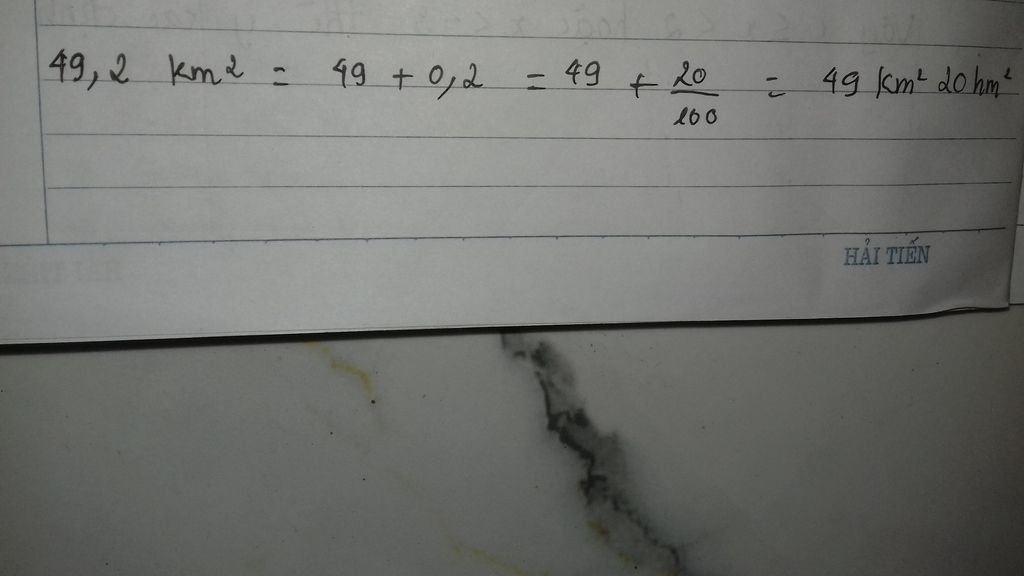 49,2 km² = 49 + 0,2 = 49 + 20/100 = 49 km² 20 hm²
HẢI TIẾN